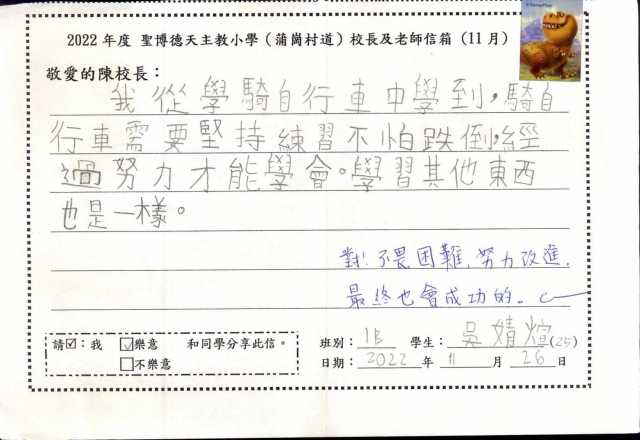 2022 年度 聖博德天主教小學（蒲崗村道）校長及老師信箱（11 月）
敬愛的陳校長：
我從學騎自行車中學到，騎自
行車需要堅持練習不怕跌倒，經
過努力才能學會。學習其他東西
也是一樣。
對！不畏困難，努力改進，
最終也會成功的。
請☑：我 ☑樂意 和同學分享此信。
□不樂意
班別：1B 學生：吳婧煊(25)
日期：2022 年 11 月 26 日